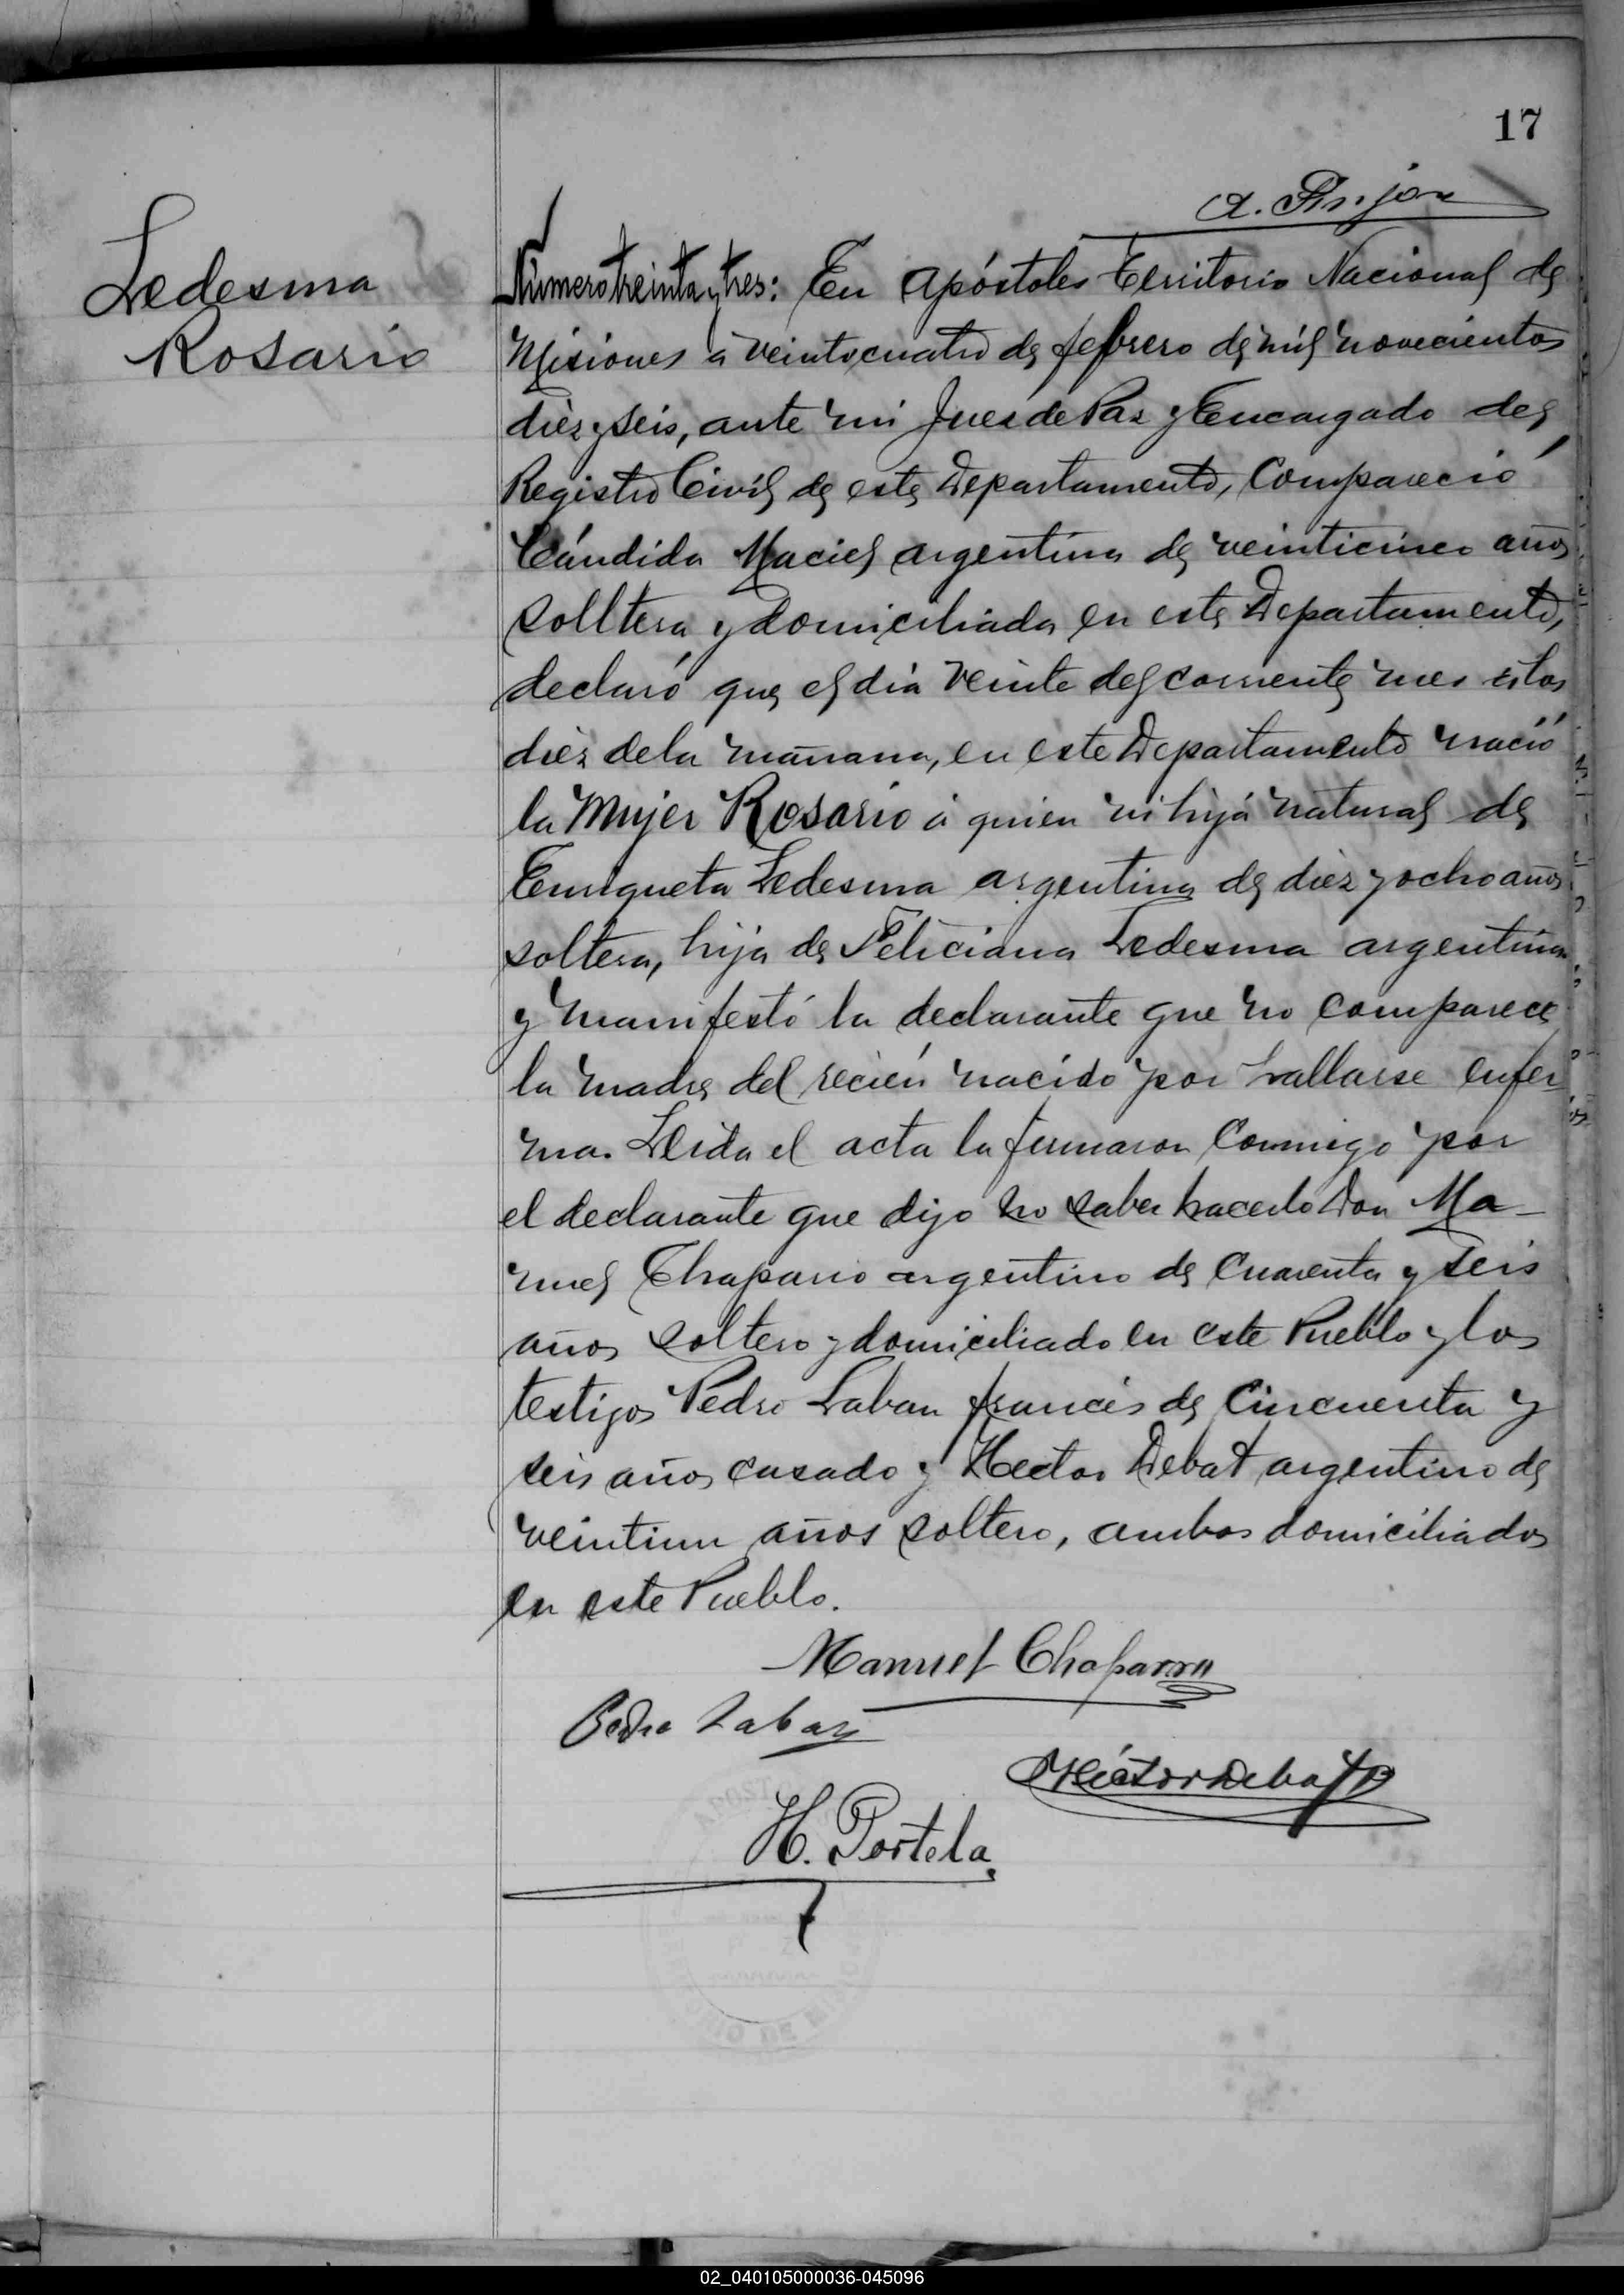 17
Ledesma
Rosario
Número treinta y tres: En Apóstoles Territorio Nacional de
Misiones a veintecuatro de febrero de mil novecientos
diez y seis, ante mi Juez de Paz y Encargado del
Registro Civil de este Departamento, Compareció
Cándida Maciel argentina de veinticinco años
solltera y domiciliada en este Departamento,
declaró que el día veinte del corriente mes a las
diez de la mañana, en este Departamento nació
la Mujer Rosario a quien vi hija natural de
Enriqueta Ledesma argentina de diez y ocho años
soltera, hija de Feliciana Ledesma argentina
y manifestó la declarante que no comparece
la madre del recién nacido por hallarse enfer
ma. Leida el acta la firmaron conmigo por
el declarante que dijo no saber hacerlo Don Ma-
nuel Chaparro argentino de cuarenta y seis
años soltero y domiciliado en este Pueblo y los
testigos Pedro Laban francés de cincuenta y
seis años casado y Hector Debat argentino de
veintiun años soltero, ambos domiciliados
en este Pueblo.
Manuel Chaparro
Pedro Laban
Héctor Debat
H. Portela
02_040105000036-045096